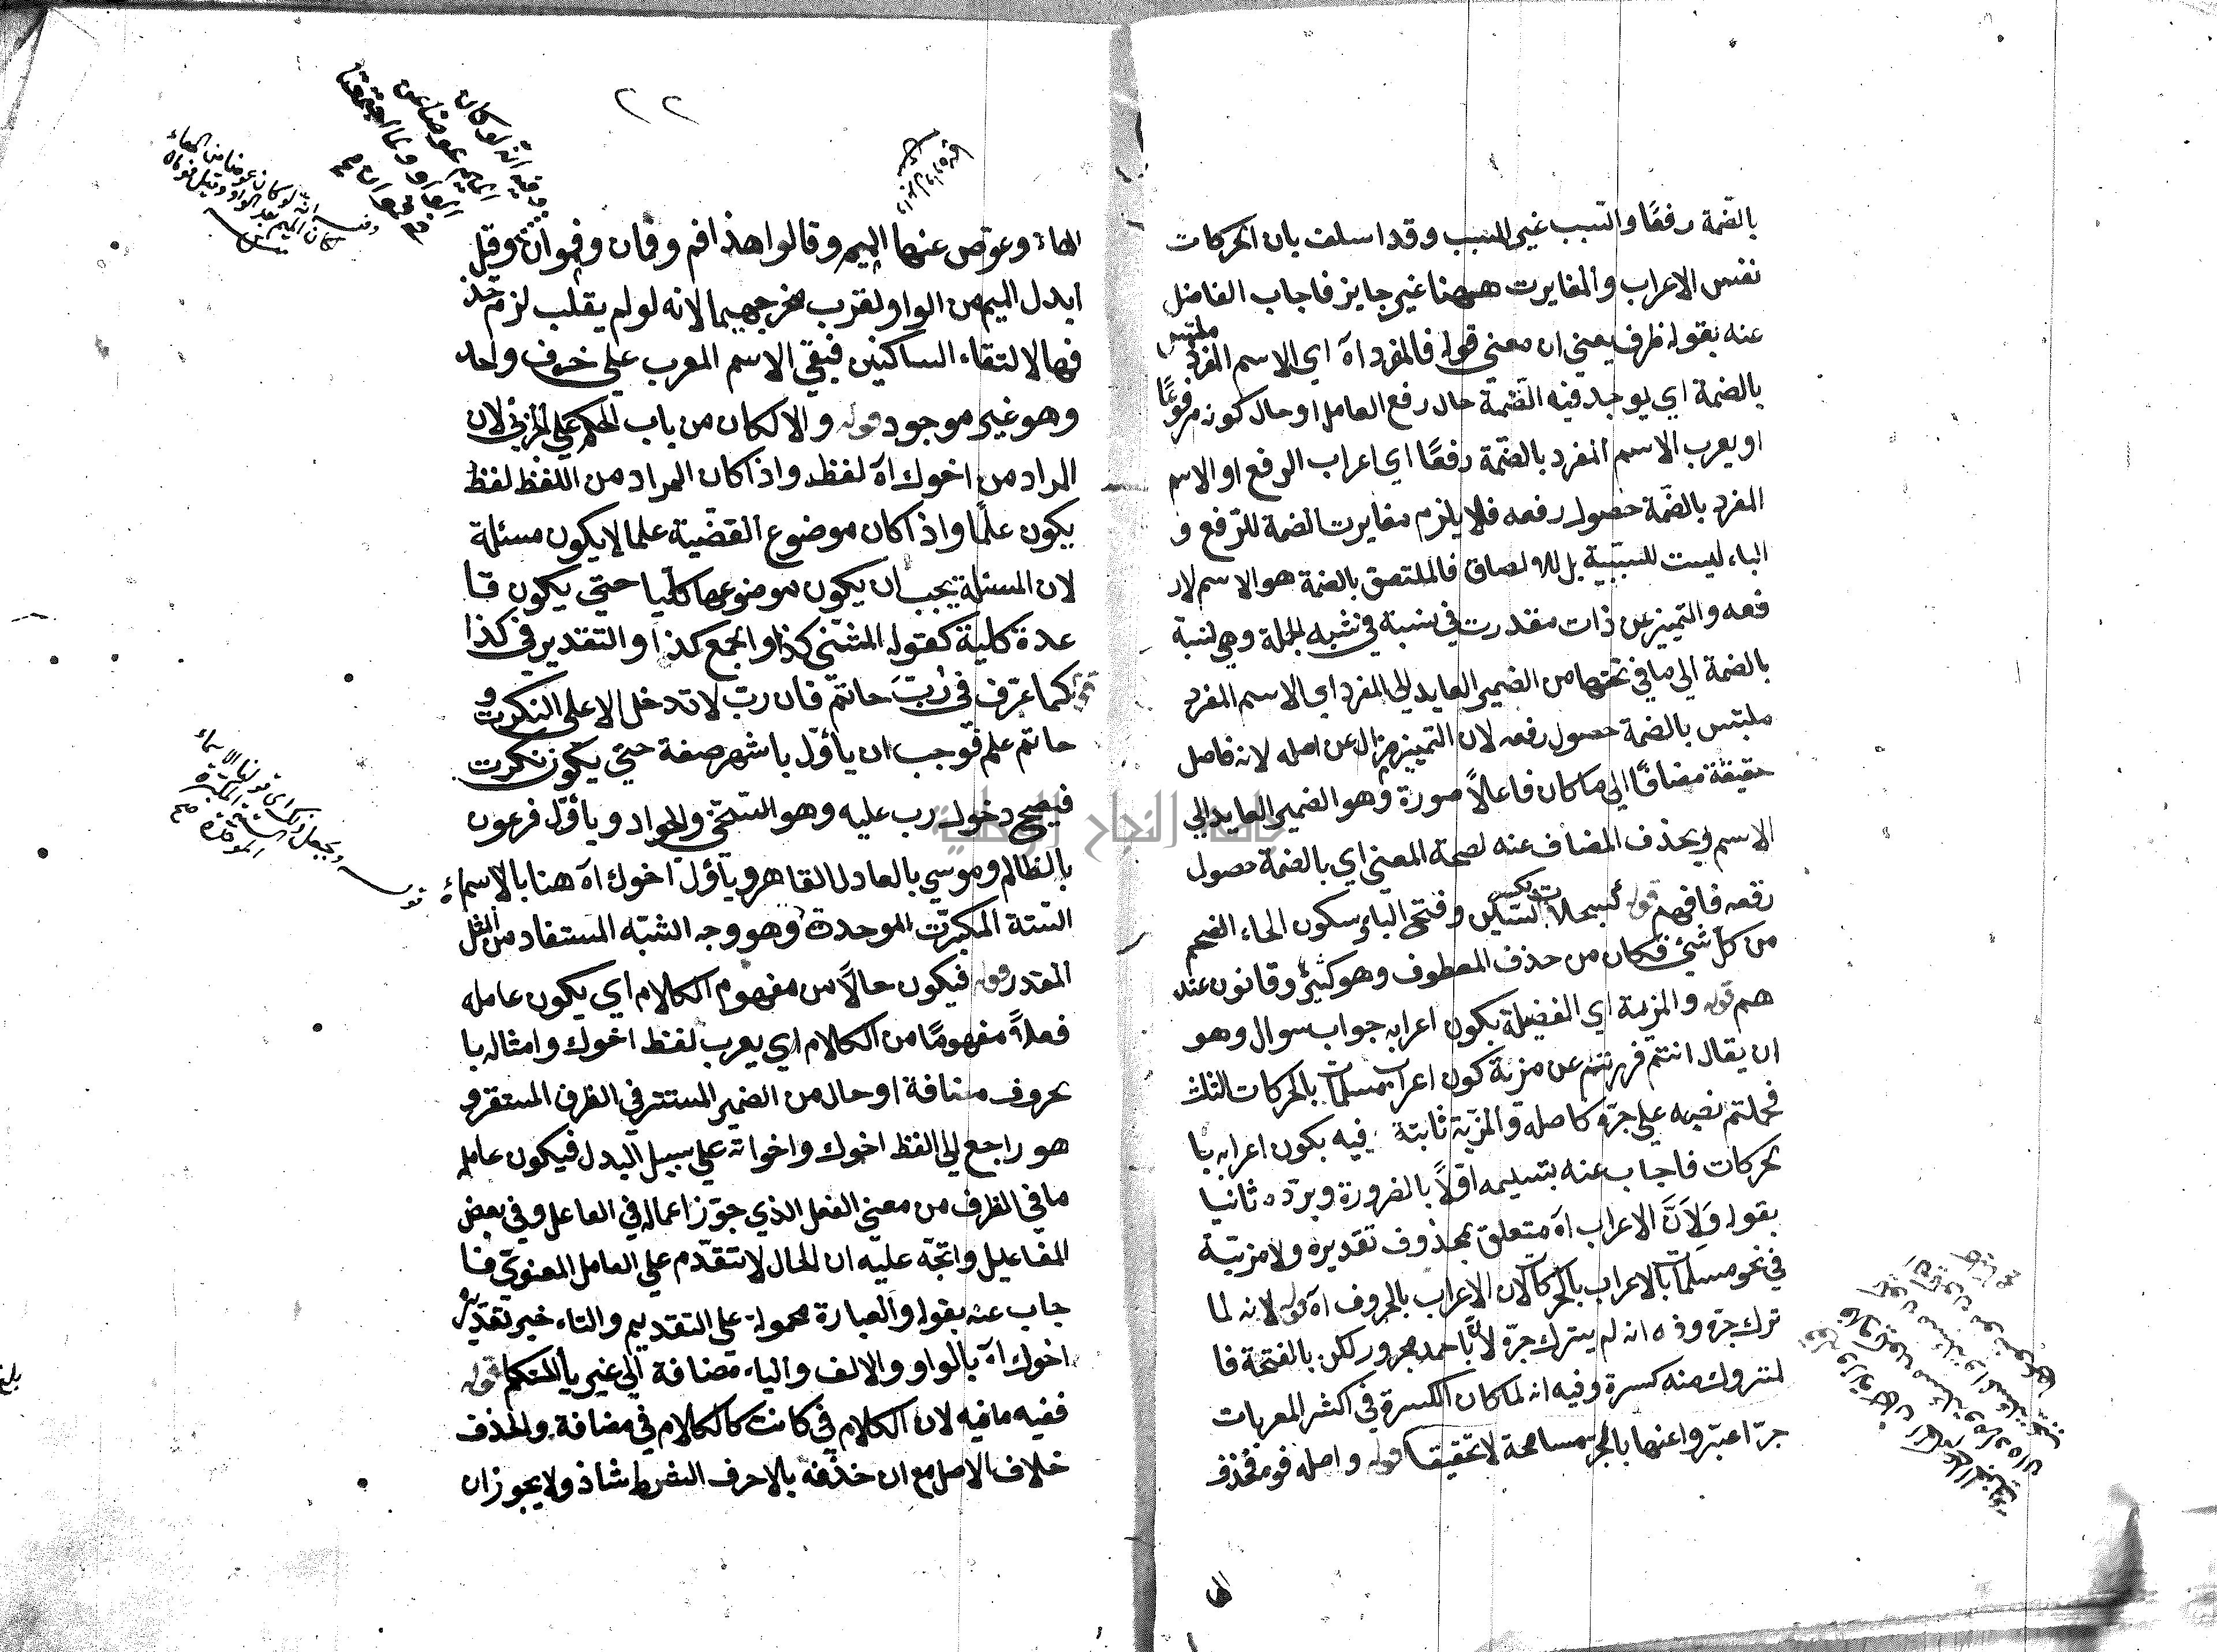 بالضمة رفعًا والسبب غير المسبب وقد اسلف بان الحركات
نفس الاعراب والمغايرت ههنا غير جايز فاجاب الفاضل
عنه بقوله ظرف يعني ان معنى قوله فالمفرد آه اي الاسم المفرد ملتبس
بالضمة اي يوجد فيه الضمة حال رفع العامل او حال كونه مرفوعًا
او يعرب الاسم المفرد بالضمة رفعًا اي اعراب الرفع او الاسم
المفرد بالضمة حصول رفعه فلا يلزم مغايرت الضمة للرفع و
الباء ليست للسببية بل للالصاق فالملتصق بالضمة هو الاسم لار
فعه والتميز عن ذات مقدرت في نسبة في شبه الجملة وهي نسبة
بالضمة الي ما في تحتها من الضمير العايد الي المفرد اي الاسم المفرد
ملتبس بالضمة حصول رفعه لان التمييز مزال عن اصله لانه فاصل
حقيقة مضافًا الي ما كان فاعلاً صورة وهو الضمير العايد الي
الاسم ويحذف المضاف عنه لصحة المعني اي بالضمة حصول
رفعه فافهم قوله كسبحلات بكسر السين وفتح الباء وسكون الحاء الضخم
من كل شئ فكان من حذف المعطوف وهو كثير وقانون عند
هم قوله والمزية اي الفضيلة بكون اعرابه جواب سوال وهو
ان يقال انتم فررتم عن مزية كون اعراب مسلمات بالحركات الثلث
فحملتم نصبه علي جره كاصله والمزية ثابتة فيه بكون اعرابه با
لحركات فاجاب عنه بتسليمه اوّلاً بالضرورة وبرده ثانيا
بقوله ولانَّ الاعراب آه متعلق بمحذوف تقديره ولا مزيّة
في نحو مسلمات بالاعراب بالحركة لان الاعراب بالحروف آه قوله لانه لما
ترك جره وفيه انه لم يترك جرّه لانّ باحمد مجرور لكن بالفتحة فا
لمتروك منه كسرة وفيه انه لما كان الكسرة في اكثر المعربات
جرّا عبّروا عنها بالجر مسامحة لا تحقيقا قوله واصله فوه فحذف
الها
٢٢
الهاء وعوّض عنها الميم وقالوا هذا فم وفمان وفموان وقيل
ابدل الميم من الواو لقرب مخرجهما لانه لو لم يقلب لزم حذ
فها لالتقاء الساكنين فبقي الاسم المعرب علي حرف واحد
وهو غير موجود قوله والا لكان من باب الحكم علي الجزئي لان
المراد من اخوك آه لفظه واذا كان المراد من اللفظ لفظ
يكون علمًا واذا كان موضوع القضية علما لا يكون مسئلة
لان المسئلة يجب ان يكون موضوعها كليا حتى يكون قا
عدة كلية كقوله المثنى كذا والجمع كذا والتقدير في كذا
كما عرف في رُبَّ حاتم فان ربّ لا تدخل الا على النكرت و
حاتم علم فوجب ان يأوّل باشهر صفة حتي يكون نكرت
فيصح دخول رب عليه وهو السخي والجواد ويأوّل فرعون
بالظالم وموسي بالعادل القاهر ويأوّل اخوك آه هنا بالاسماء
الستة المكبرت الموحدة وهو وجه الشبه المستفاد من المثل
المقدر قوله فيكون حالاً من مفهوم الكلام اي يكون عامله
فعلاً مفهومًا من الكلام اي يعرب لفظ اخوك وامثاله با
لحروف مضافة او حال من الضمير المستتر في الظرف المستقر و
هو راجع الي لفظ اخوك واخواته علي سبيل البدل فيكون عامله
ما في الظرف من معني الفعل الذي جوّز اعماله في الفاعل وفي بعض
المفاعيل واتجه عليه ان الحال لا تتقدّم علي العامل المعنوي فا
جاب عنه بقوله والعبارة محمولة علي التقديم والتاء خير تقديره
اخوك آه بالواو والالف والياء مضافة الي غير ياء المتكلم قوله
ففيه ما فيه لان الكلام في كانت كالكلام في مضافة والحذف
خلاف الاصل مع ان حذفه بالاحرف الشرط شاذ ولا يجوز ان
فيه انّه لو كان
الميم عوضا عن
وفيه انّه لو كان عوضا من الهاء
كان الميم بعد الواو وقيل فوماه
ويجعل ذلك اي قولنا الاسماء
الستة المكبرة
الموحدة صح
جامعة النجاح الوطنية